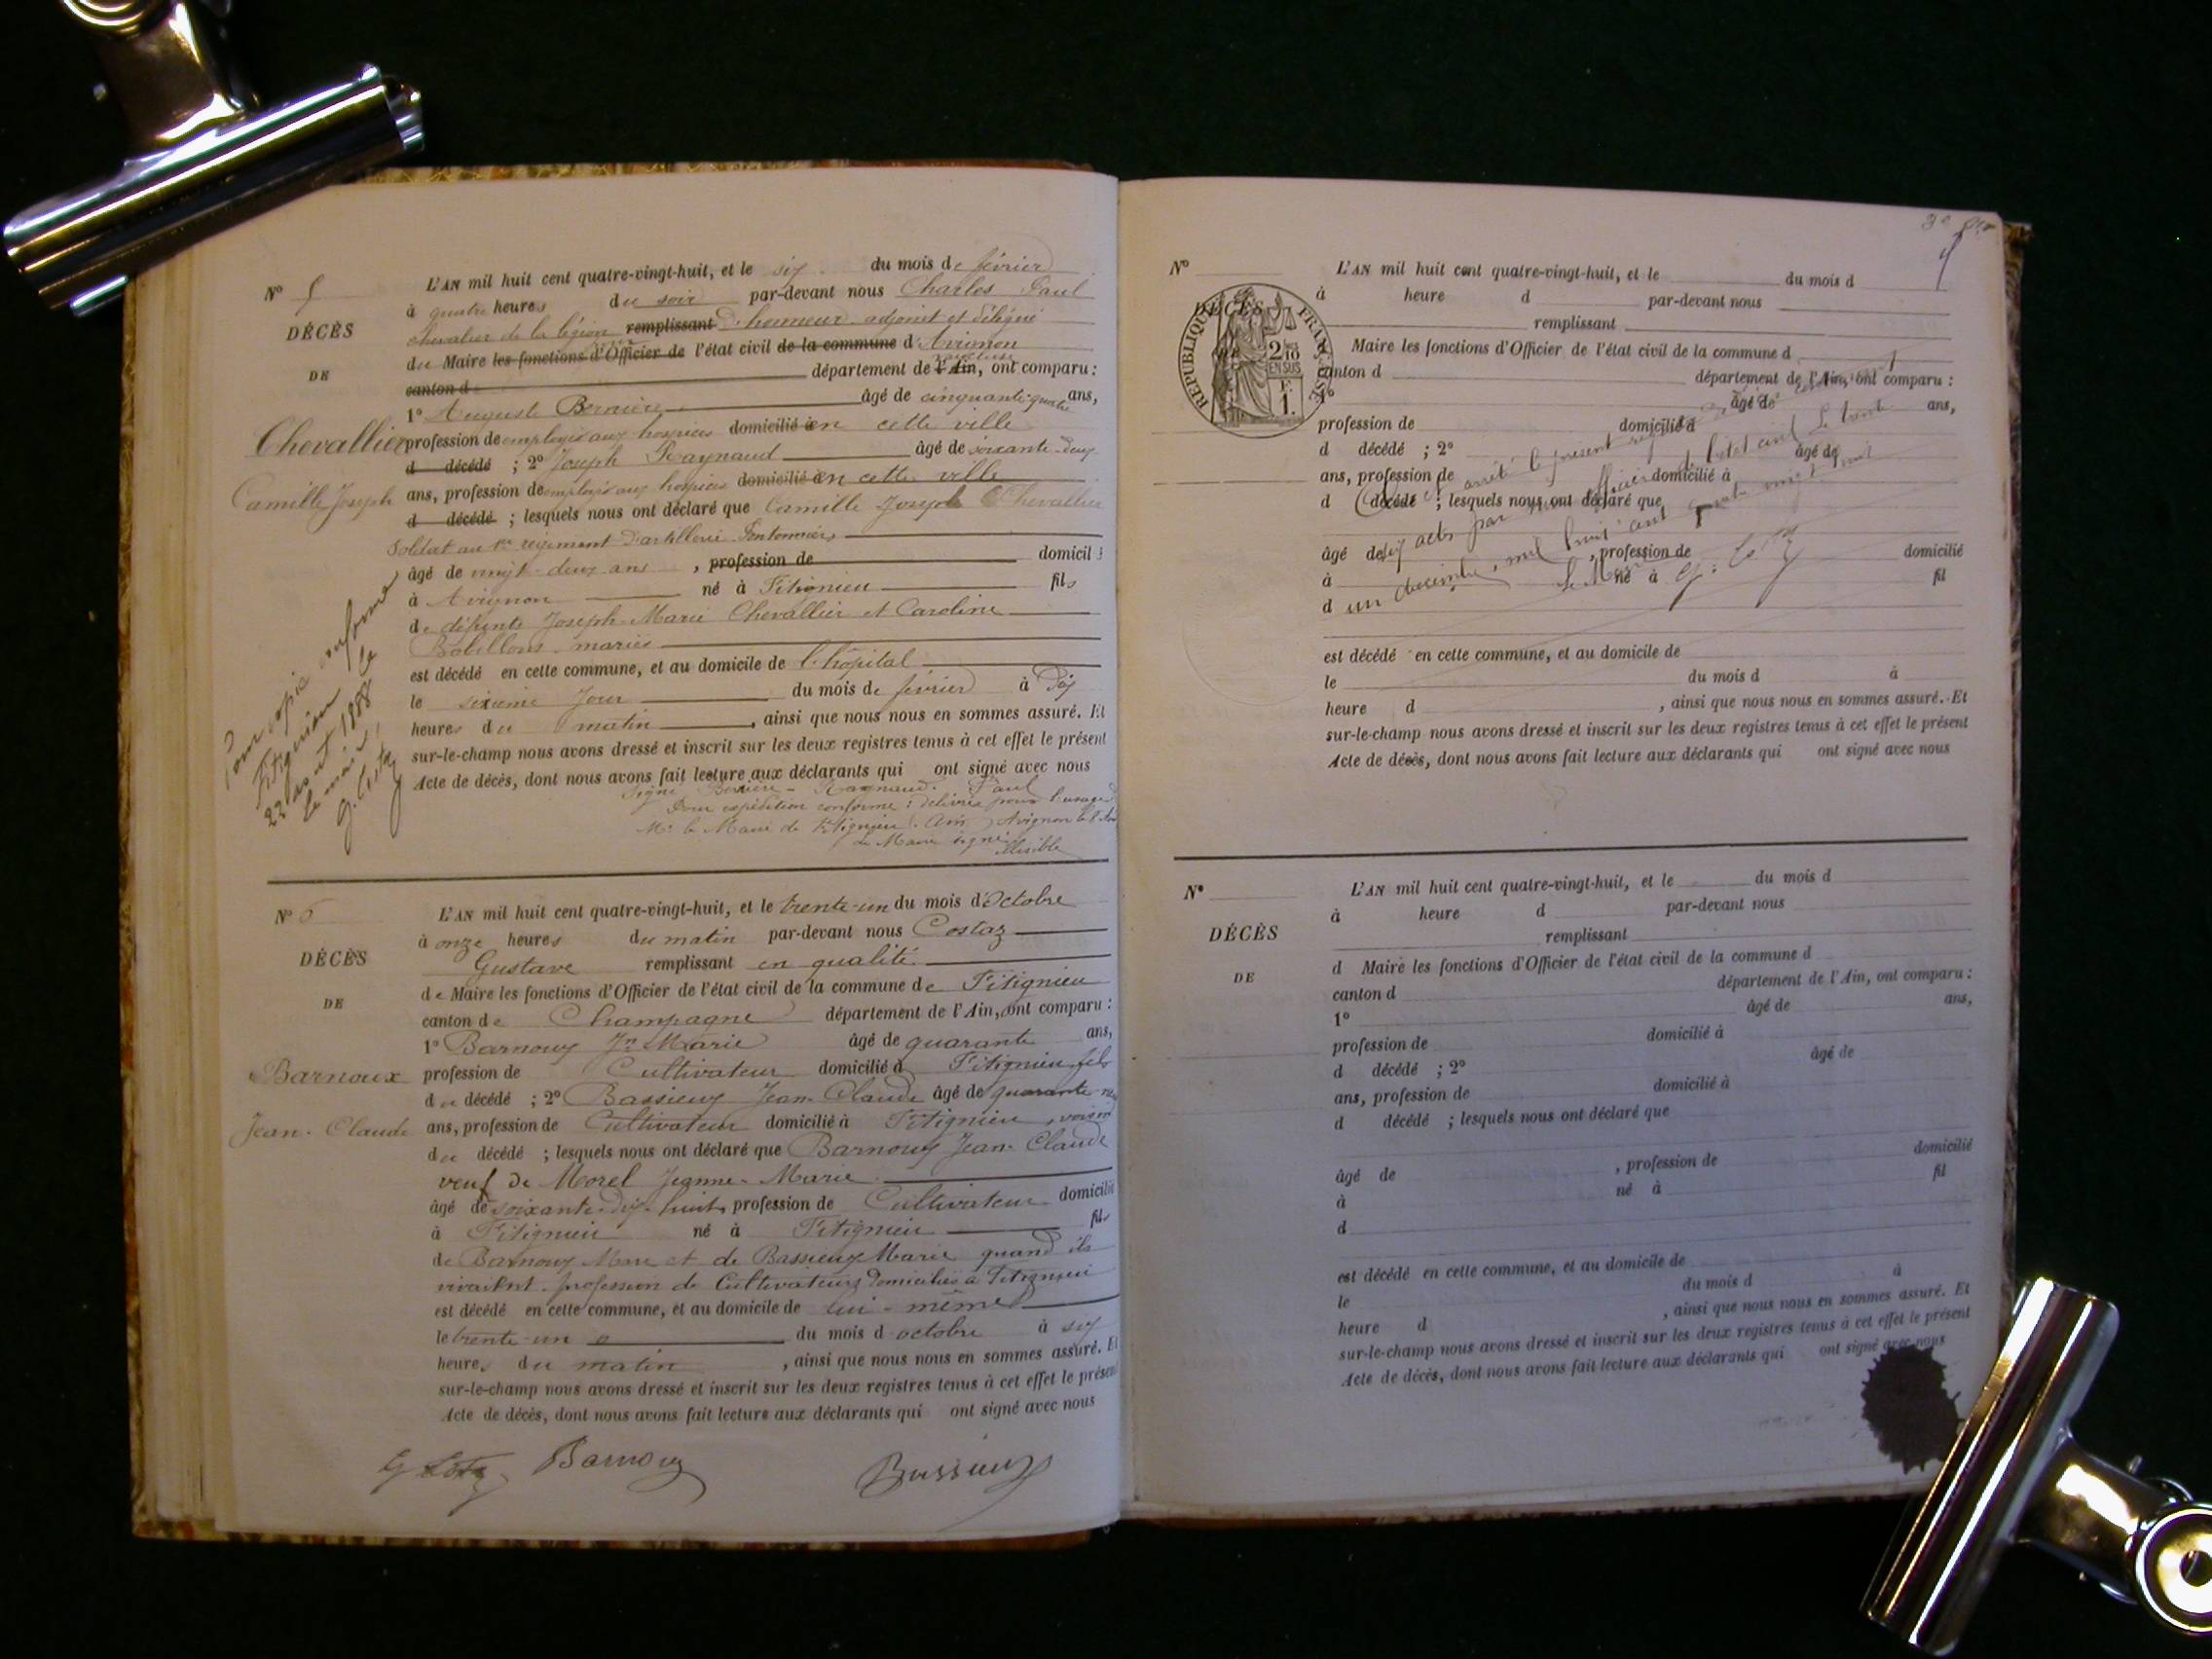 N° 5
DÉCÈS
DE
Chevallier
Camille Joseph
L'AN mil huit cent quatre-vingt-huit, et le six du mois de février
à quatre heures du soir par-devant nous Charles Paul
chevalier de la légion remplissant d'honneur adjoint et délégué
du Maire les fonctions d'Officier de l'état civil de la commune d'Avignon
canton d département de l'Ain, vaucluse ont comparu :
1° Auguste Bernière âgé de cinquante-quatre ans,
profession de employé aux hospices domicilié à en cette ville
d décédé ; 2° Joseph Raynaud âgé de soixante-deux
ans, profession de employé aux hospices domicilié à en cette ville
d décédé ; lesquels nous ont déclaré que Camille Joseph Chevallier
Soldat au 1er régiment d'artillerie Pontonniers
âgé de vingt-deux ans, profession de domicilié
à Avignon né à Fitignieu fils
de défunts Joseph Marie Chevallier et Caroline
Bobillon mariés
est décédé en cette commune, et au domicile de l'hôpital
le sixième jour du mois de février à dix
heures du matin, ainsi que nous nous en sommes assuré. Et
sur-le-champ nous avons dressé et inscrit sur les deux registres tenus à cet effet le présent
Acte de décès, dont nous avons fait lecture aux déclarants qui ont signé avec nous
signé Bernière - Raynaud. Paul
Pour expédition conforme : délivrée pour l'usage
Mr le Maire de Fitignieu (Ain) Avignon le 8
Le Maire signé
illisible
Pour copie conforme
Fitignieu le
22 août 1888
Le maire,
N° 6
DÉCÈS
DE
Barnoux
Jean-Claude
L'AN mil huit cent quatre-vingt-huit, et le trente-un du mois d'Octobre
à onze heures du matin par-devant nous Costaz
Gustave remplissant en qualité
de Maire les fonctions d'Officier de l'état civil de la commune de Fitignieu
canton de Champagne département de l'Ain, ont comparu :
1° Barnoux Jn Marie âgé de quarante ans,
profession de Cultivateur domicilié à Fitignieu fils
du décédé ; 2° Bassieux Jean-Claude âgé de quarante
ans, profession de Cultivateur domicilié à Fitignieu, voisin
du décédé ; lesquels nous ont déclaré que Barnoux Jean-Claude
veuf de Morel Jeanne-Marie
âgé de soixante-dix-huit, profession de Cultivateur domicilié
à Fitignieu né à Fitignieu fils
de Barnoux Marc et de Bassieux Marie quand ils
vivaient profession de Cultivateurs domiciliés à Fitignieu
est décédé en cette commune, et au domicile de lui-même
le trente-un du mois d octobre à six
heures du matin, ainsi que nous nous en sommes assuré. Et
sur-le-champ nous avons dressé et inscrit sur les deux registres tenus à cet effet le présent
Acte de décès, dont nous avons fait lecture aux déclarants qui ont signé avec nous
Barnoux Bassieux
N°
DÉCÈS
RÉPUBLIQUE FRANÇAISE
2/10 EN SUS
F. 1.
L'AN mil huit cent quatre-vingt-huit, et le du mois d
à heure d par-devant nous
remplissant
Maire les fonctions d'Officier de l'état civil de la commune d
canton d département de l'Ain, ont comparu :
1° âgé de ans,
profession de domicilié à
d décédé ; 2° âgé de
ans, profession de domicilié à
d décédé ; lesquels nous ont déclaré que
âgé de , profession de domicilié
à né à fil
d
arrêté le présent registre
six actes par officier de l'état civil le trente
un décembre, mil huit cent quatre vingt huit
Le Maire
est décédé en cette commune, et au domicile de
le du mois d à
heure d , ainsi que nous nous en sommes assuré. Et
sur-le-champ nous avons dressé et inscrit sur les deux registres tenus à cet effet le présent
Acte de décès, dont nous avons fait lecture aux déclarants qui ont signé avec nous
N°
DÉCÈS
DE
L'AN mil huit cent quatre-vingt-huit, et le du mois d
à heure d par-devant nous
remplissant
d Maire les fonctions d'Officier de l'état civil de la commune d
canton d département de l'Ain, ont comparu :
1° âgé de ans,
profession de domicilié à
d décédé ; 2° âgé de
ans, profession de domicilié à
d décédé ; lesquels nous ont déclaré que
âgé de , profession de domicilié
à né à fil
d
est décédé en cette commune, et au domicile de
le du mois d à
heure d , ainsi que nous nous en sommes assuré. Et
sur-le-champ nous avons dressé et inscrit sur les deux registres tenus à cet effet le présent
Acte de décès, dont nous avons fait lecture aux déclarants qui ont signé avec nous